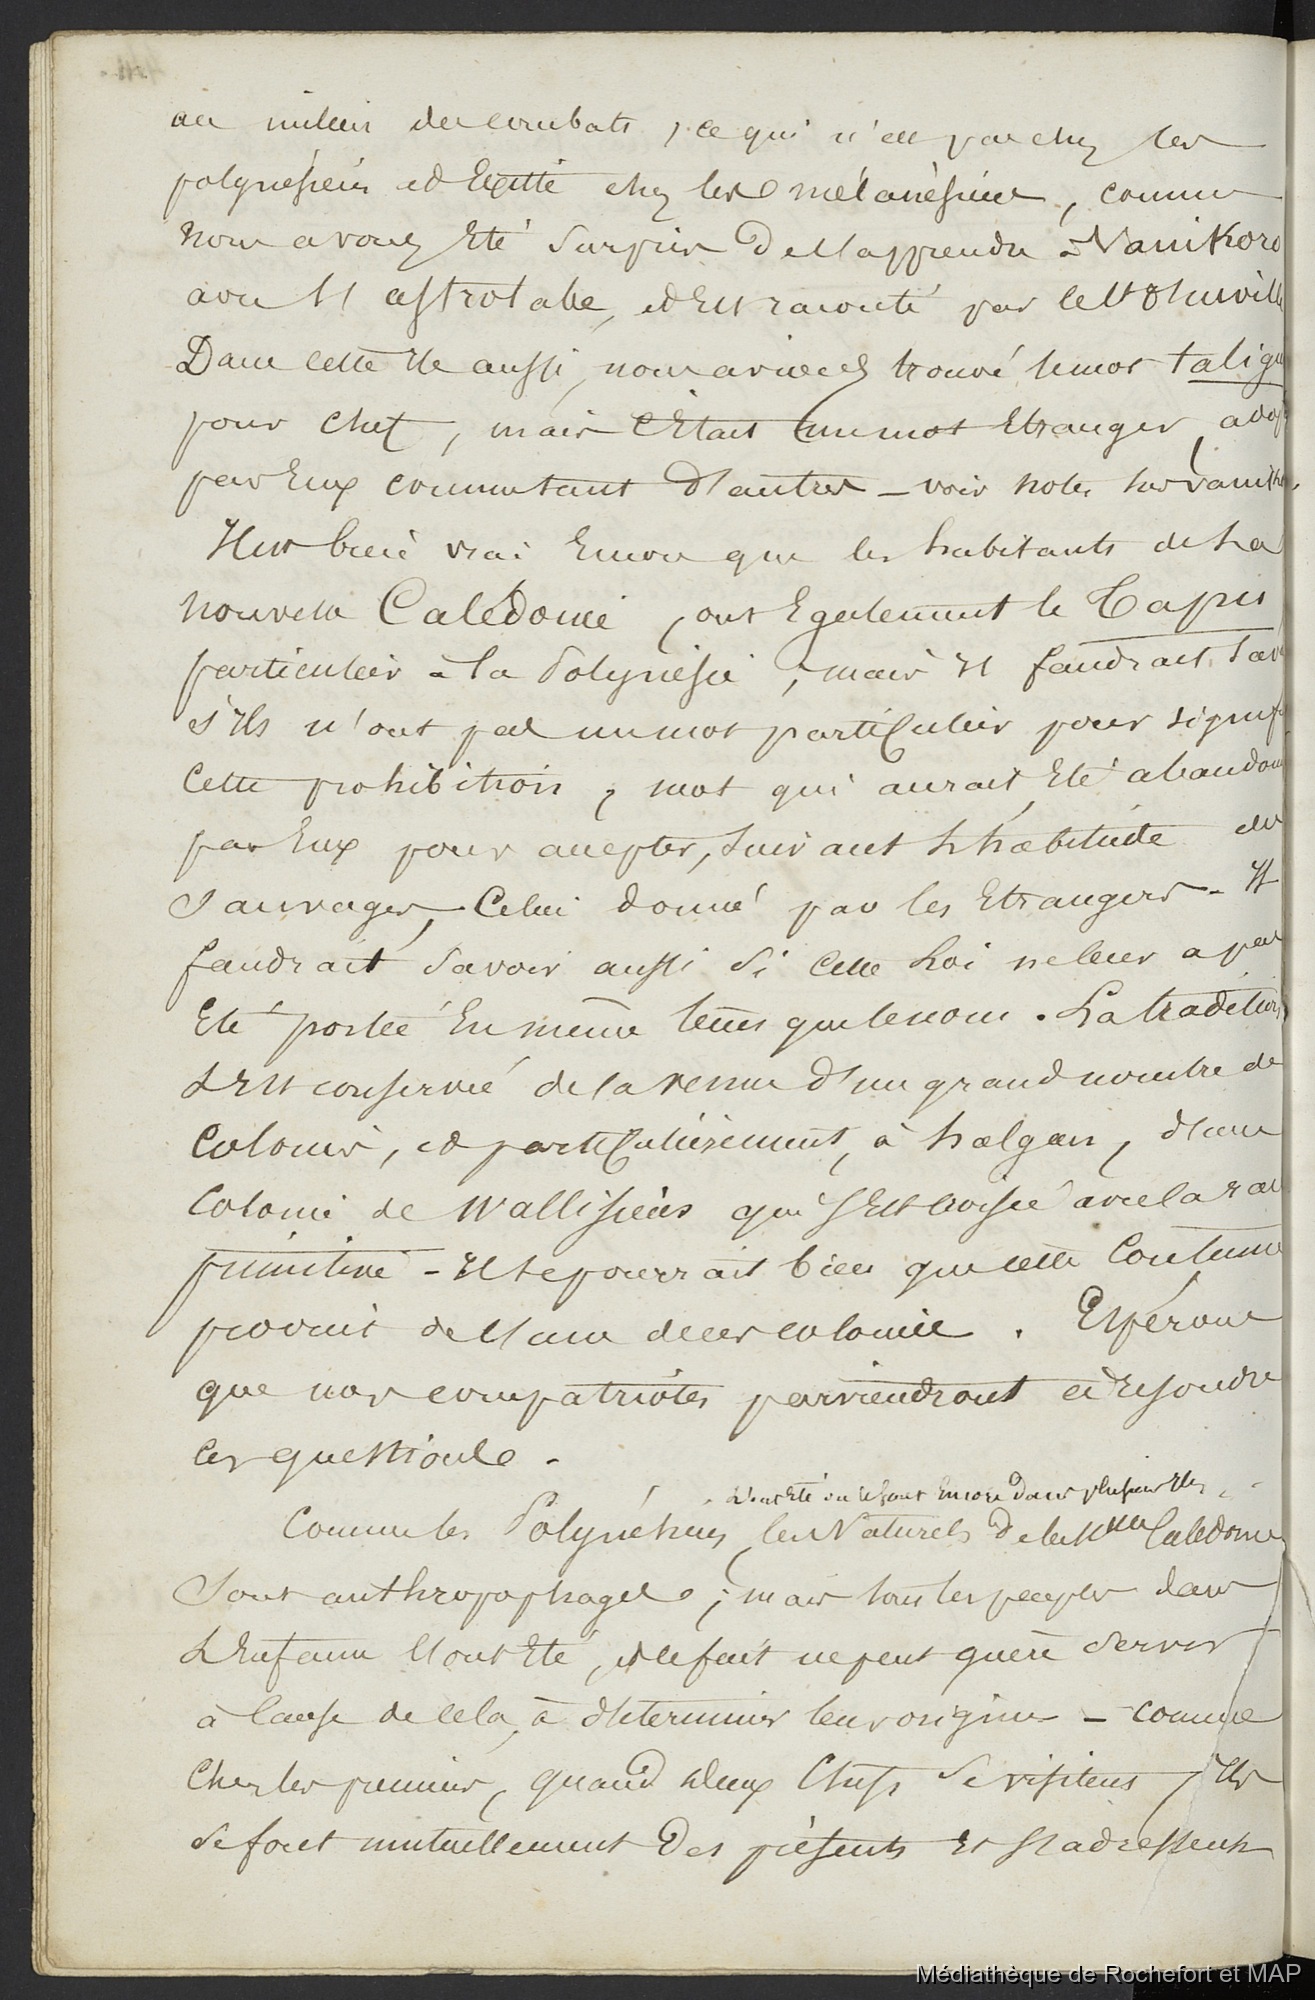 au milieu des combats, ce qui n'est pas chez les
polynésiens et Existe chez les mélanésiens, comme
nous avons Eté surpris de l'apprendre à Vanikoro
avec l'astrolabe, et Est raconté par
Dans cette Ile aussi, nous avions trouvé le mot taligui
pour chef, mais c'Etait un mot Etranger, adop
par Eux comme tant d'autres - voir notes sur vanikoro
Il est bien vrai Encore que les habitants de la
nouvelle Calédonie, ont Egalement le Tapu
particulier à la Polynésie, mais Il faudrait sav
s'Ils n'ont pas un mot particulier pour signif
cette prohibition, mot qui aurait Eté abandonn
par Eux pour accepter, suivant l'habitude des
sauvages, celui donné par les Etrangers - Il
faudrait savoir aussi si cette Loi ne leur a pas
Eté portée En même tems que le nom. La tradition
s'Est conservée de la venue d'un grand nombre de
colonies, et particulièrement, à halgan, d'une
colonie de Wallisiens qui s'Est croisée avec la race
primitive - Il se pourrait bien que cette coutume
provint de l'une de ces colonies. Espérons
que nos compatriotes parviendront à résoudre
ces questions.
l'ont Eté ou le sont Encore dans plusieurs Iles,
Comme les Polynésiens, les Naturels de la Nlle Calédonie
sont anthropophages ; mais tous les peuples dans
L'Enfance l'ont Eté, et le fait ne peut guère servir
à cause de cela, à déterminer leur origine - comme
Chez les premiers, quand deux Chefs se visitent, Ils
se font mutuellement des présents et s'adressent
Médiathèque de Rochefort et MAP